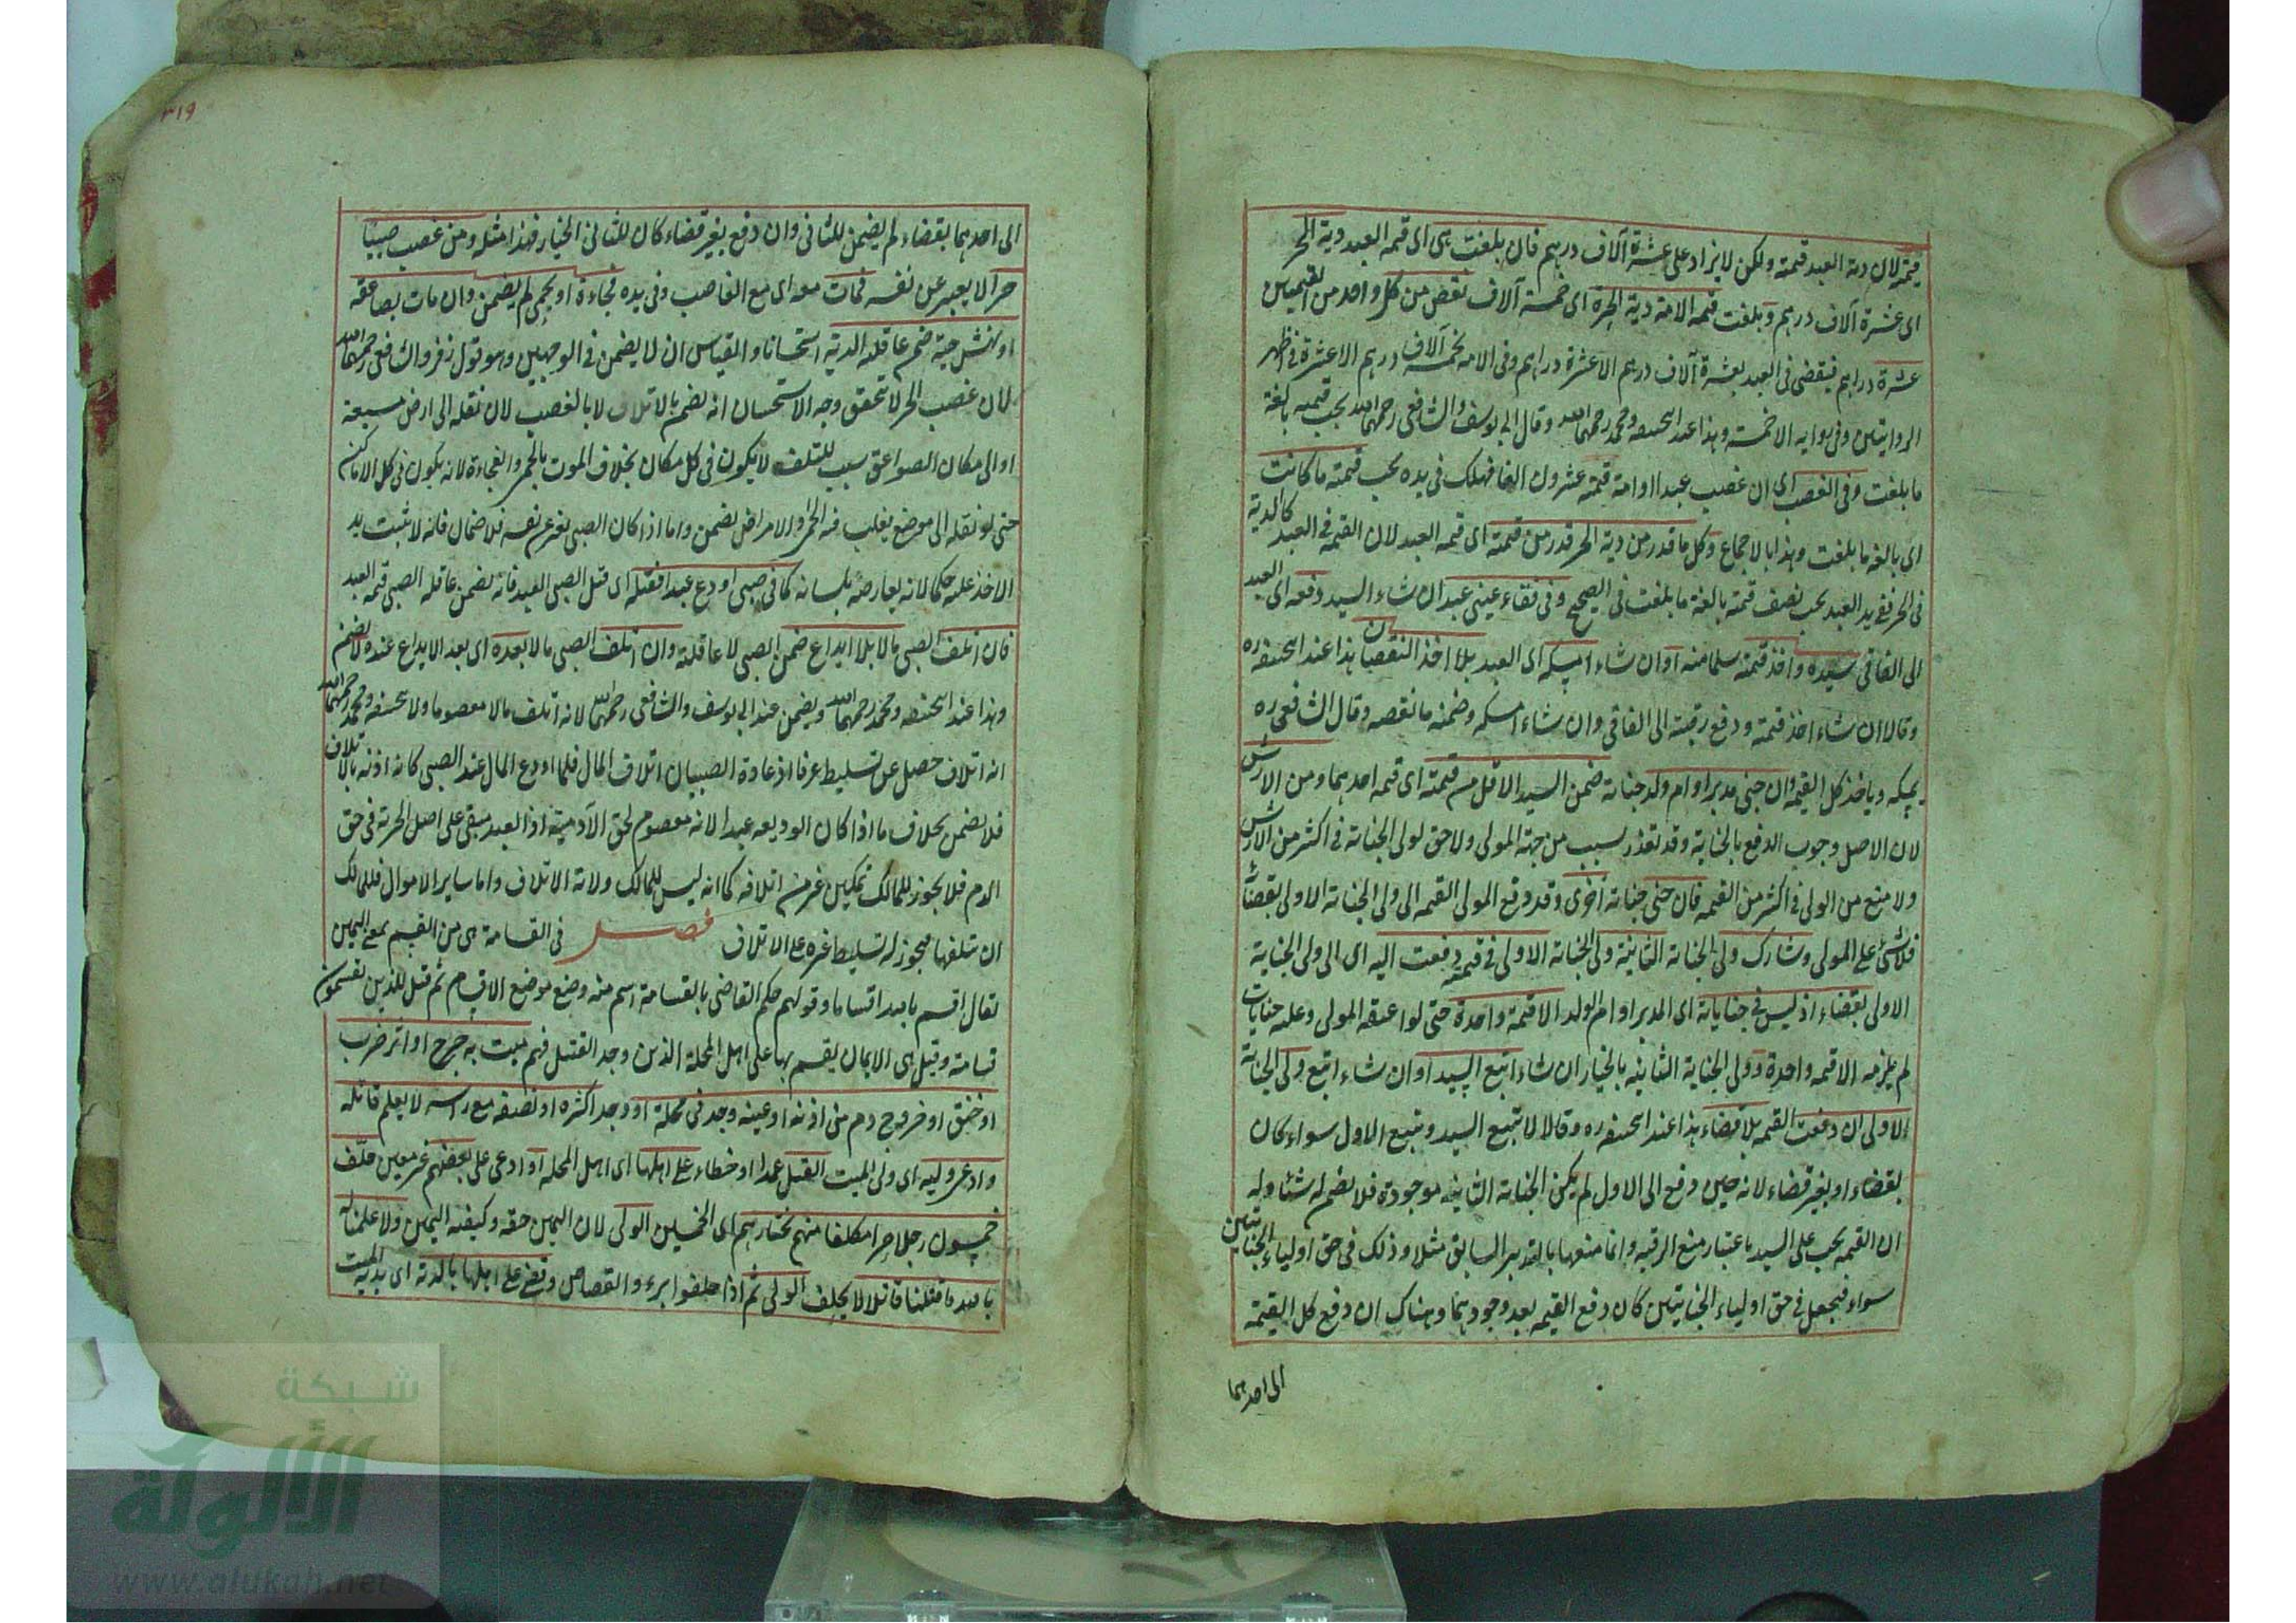 قيمته لان دية العبد قيمته ولكن لا يزاد على عشرة آلاف درهم فان بلغت هى اى قيمة العبد دية الحر
اى عشرة آلاف درهم وبلغت قيمة الامة دية الحرة اى خمسة آلاف نقص من كل واحد من القيمتين
عشرة دراهم فيقضى فى العبد بعشرة آلاف درهم الا عشرة دراهم وفى الامة بخمسة آلاف درهم الا عشرة فى اظهر
الروايتين وفى رواية الا خمسة وهذا عند ابيحنيفه ومحمد رحمهما الله وقال ابى يوسف والشافعى رحمهما الله يجب قيمته بالغة
ما بلغت وفى الغصب اى ان غصب عبدا او امة قيمته عشرون الفا فهلك فى يده يجب قيمته ما كانت
اى بالغة ما بلغت وهذا بالاجماع وكل ما قدر من دية الحر قدر من قيمته اى قيمة العبد لان القيمة فى العبد كالدية
فى الحر ففى يد العبد يجب نصف قيمته بالغة ما بلغت فى الصحيح وفى فقاء عينى عبد ان شاء السيد دفعه اى العبد
الى الفاقى سيده واخذ قيمته سلما منه او ان شاء امسكه اى العبد بلا اخذ النقصان هذا عند ابيحنيفه ره
وقالا ان شاء اخذ قيمته ودفع رقبته الى الفاقى وان شاء امسكه وضمنه ما نقصه وقال الشافعى ره
يمسكه وياخذ كل القيمة وان جنى مدبر او ام ولد جناية ضمن السيد الاقل من قيمته اى قيمة احدهما ومن الارش
لان الاصل وجوب الدفع بالجناية وقد تعذر بسبب من جهة المولى ولا حق لولى الجناية فى اكثر من الارش
ولا منع من الولى فى اكثر من القيمة فان جنى جناية اخرى وقد دفع المولى القيمة الى ولى الجناية الاولى بقضاء
فلا شئ على المولى وشارك ولى الجناية الثانية ولى الجناية الاولى فى قيمته دفعت اليه اى الى ولى الجناية
الاولى بقضاء اذ ليس فى جناياته اى المدبر او ام الولد الا قيمة واحدة حتى لو اعتقه المولى وعليه جنايات
لم يلزمه الا قيمة واحدة وولى الجناية الثانية بالخيار ان شاء اتبع السيد او ان شاء اتبع ولى الجناية
الاولى ان دفعت القيمة بلا قضاء هذا عند ابيحنيفه ره وقالا لا يتبع السيد ويتبع الاول سواء كان
بقضاء او بغير قضاء لانه حين دفع الى الاول لم يكن الجناية الثانية موجودة فلا يضمن له شئا وله
ان القيمة يجب على السيد باعتبار منع الرقبة وانما منعها بالتدبير السابق مثلا وذلك فى حق اولياء الجنايتين
سواء فيجعل فى حق اولياء الجنايتين كان دفع القيمة بعد وجودهما وهناك ان دفع كل القيمة
الى احدهما
٣١٩
الى احدهما بقضاء لم يضمن للثانى وان دفع بغير قضاء كان للثانى الخيار فهذا مثله ومن غصب صبيا
حرا لا يعبر عن نفسه فمات معه اى مع الغاصب وفى يده فجاءة او بحمى لم يضمن وان مات بصاعقة
او نهش حية ضمن عاقلته الدية استحسانا والقياس ان لا يضمن فى الوجهين وهو قول زفر والشافعى رحمهما الله
لان غصب الحر لا تحقق وجه الاستحسان انه يضمن بالاتلاف لا بالغصب لان نقله الى ارض مسبعة
او الى مكان الصواعق سبب للتلف لا يكون فى كل مكان بخلاف الموت بالحمى والفجاءة لانه يكون فى كل الاماكن
حتى لو نقله الى موضع يغلب فيه الحمى والامراض يضمن واما اذا كان الصبى يعبر عن نفسه فلا ضمان فانه لا يثبت يد
الاخذ عليه حكما لانه يعارضه بلسانه كما فى صبى اودع عبدا فقتله اى قتل الصبى العبد فانه يضمن عاقلة الصبى قيمة العبد
فان اتلف الصبى مالا بلا ايداع ضمن الصبى لا عاقلته وان اتلف الصبى مالا بعده اى بعد الايداع عنده لا يضمن
وهذا عند ابيحنيفه ومحمد رحمهما الله ويضمن عند ابى يوسف والشافعى رحمهما الله لانه اتلف مالا معصوما ولابيحنيفه ومحمد رحمهما الله
انه اتلاف حصل عن تسليط عرفا اذ عادة الصبيان اتلاف المال فلما اودع المال عند الصبى كانه اذنه بالاتلاف
فلا يضمن بخلاف ما اذا كان الوديعة عبدا لانه معصوم لحق الآدمية اذ العبد مبقى على اصل الحرية فى حق
الدم فلا يجوز للمالك تمكين غيره من اتلافه كما انه ليس للمالك ولاية الاتلاف واما ساير الاموال فللمالك
ان يتلفها فيجوز له تسليط غيره على الاتلاف فصل فى القسامة هى من القسم بمعنى اليمين
يقال اقسم بالله اقساما وقولهم حكم القاضى بالقسامة اسم منه وضع موضع الاقسام ثم قيل للذين يقسمون
قسامة وقيل هى الايمان يقسم بها على اهل المحلة الذين وجد القتيل فيهم ميت به جرح او اثر ضرب
او خنق او خروج دم من اذنه او عينه وجد فى محلة او وجد اكثره او نصفه مع راسه لا يعلم قاتله
وادعى وليه اى ولى الميت القتل عمدا او خطاء على اهلها اى اهل المحلة او ادعى على بعضهم غير معين حلف
خمسون رجلا حرا مكلفا منهم يختارهم اى الخمسين الولى لان اليمين حقه وكيفية اليمين ولا علمنا له
بالله ما قتلنا قاتلا لا يحلف الولى ثم اذا حلفوا ابرء والقصاص وقضى على اهلها بالدية اى بدية الميت
شبكة
الألوكة
www.alukah.net